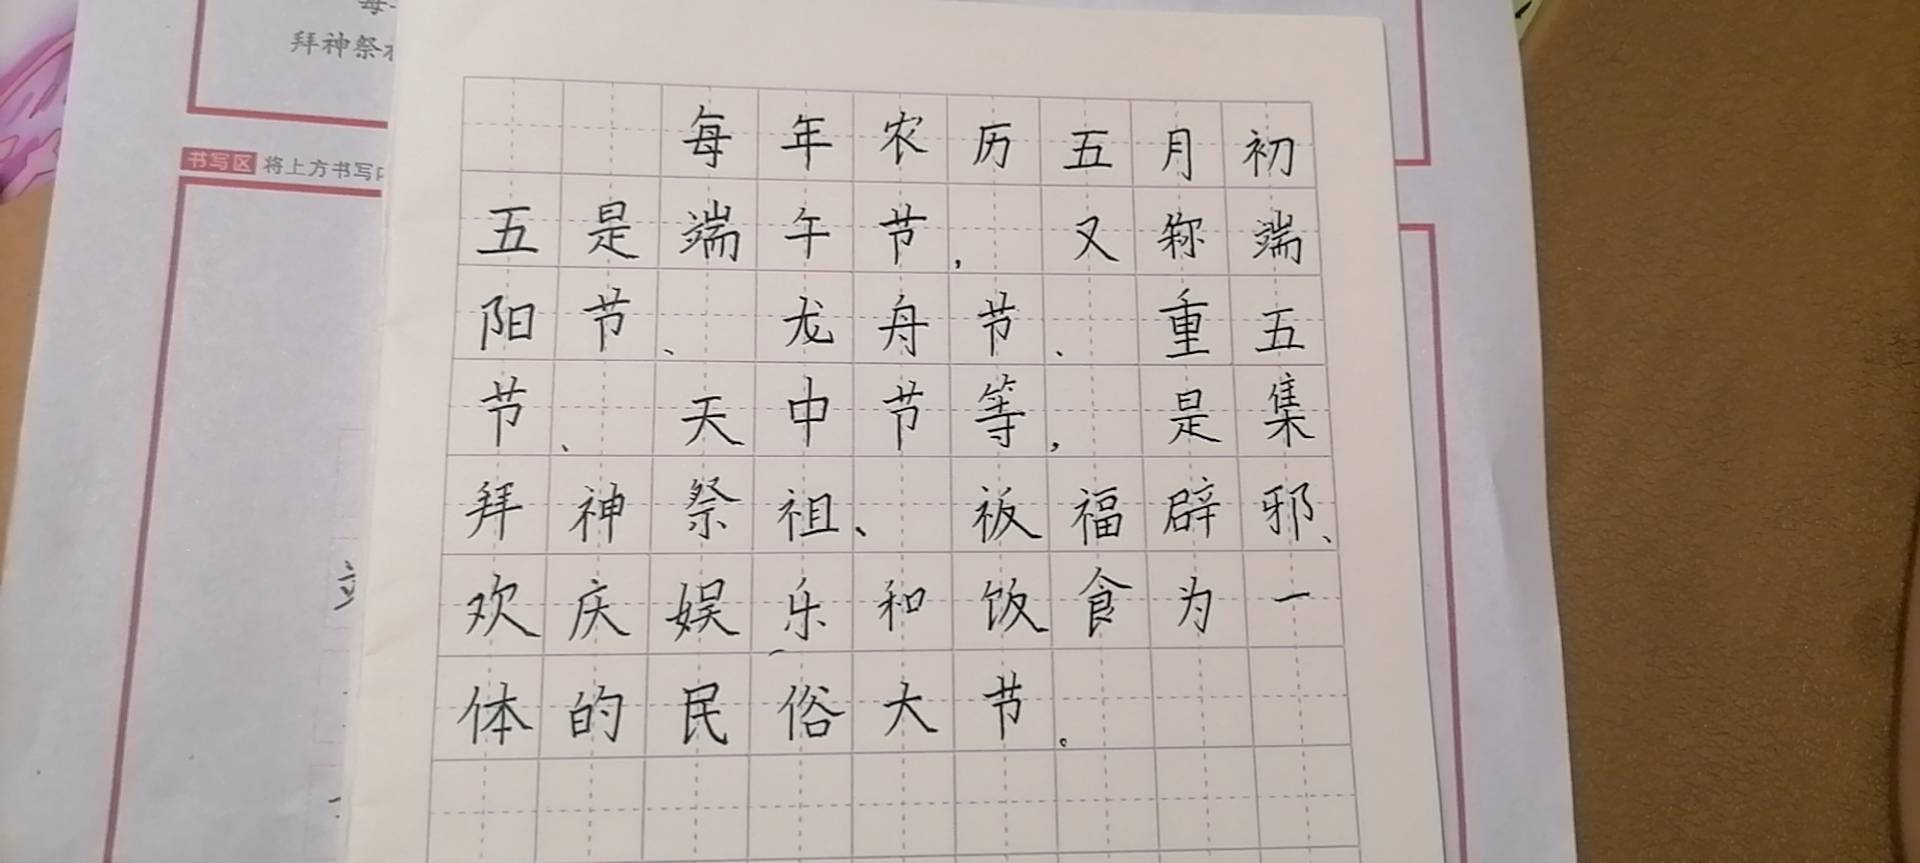 拜神祭
书写区 将上方书写
每年农历五月初
五是端午节，又称端
阳节、龙舟节、重五
节、天中节等，是集
拜神祭祖、祈福辟邪、
欢庆娱乐和饮食为一
体的民俗大节。